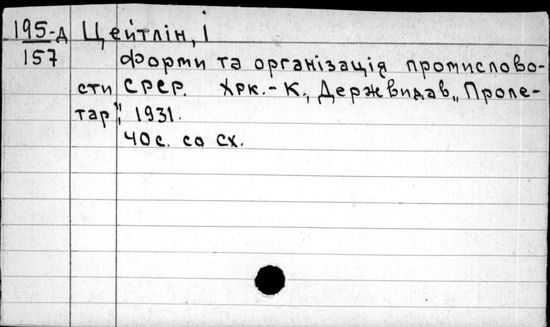 195-д Цейтлін, І
157 Форми та організація промислово-
сти СРСР. Хрк.-К., Держвидав „Проле-
тар”, 1931.
40с. со сх.